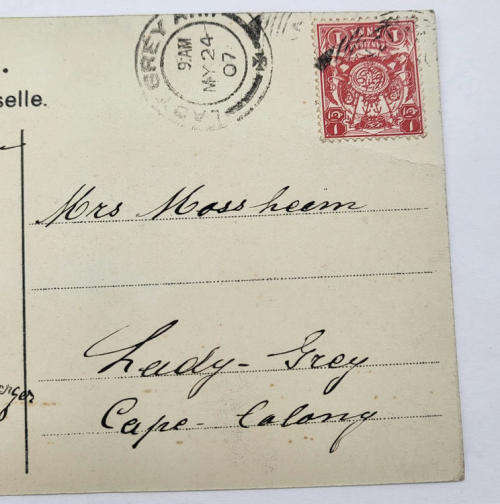 LADY GREY
9:AM
MY 24
07
1 1
1 1
selle.
Mrs Mossheim
Lady-Grey
Cape-Colony